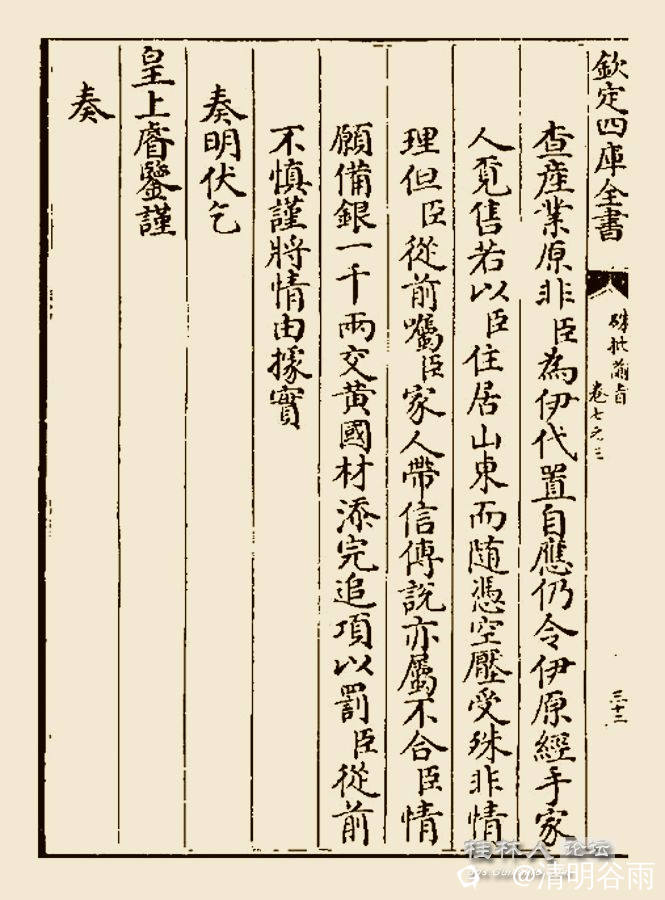 欽定四庫全書
硃批諭旨
卷七之三
三十三
查産業原非臣為伊代置自應仍令伊原經手家
人覔售若以臣住居山東而随憑空壓受殊非情
理但臣從前囑臣家人帶信傳說亦屬不合臣情
願備銀一千兩交黄國材添完追項以罰臣從前
不慎謹將情由據實
奏明伏乞
皇上睿鑒謹
奏
桂林人论坛
@清明谷雨